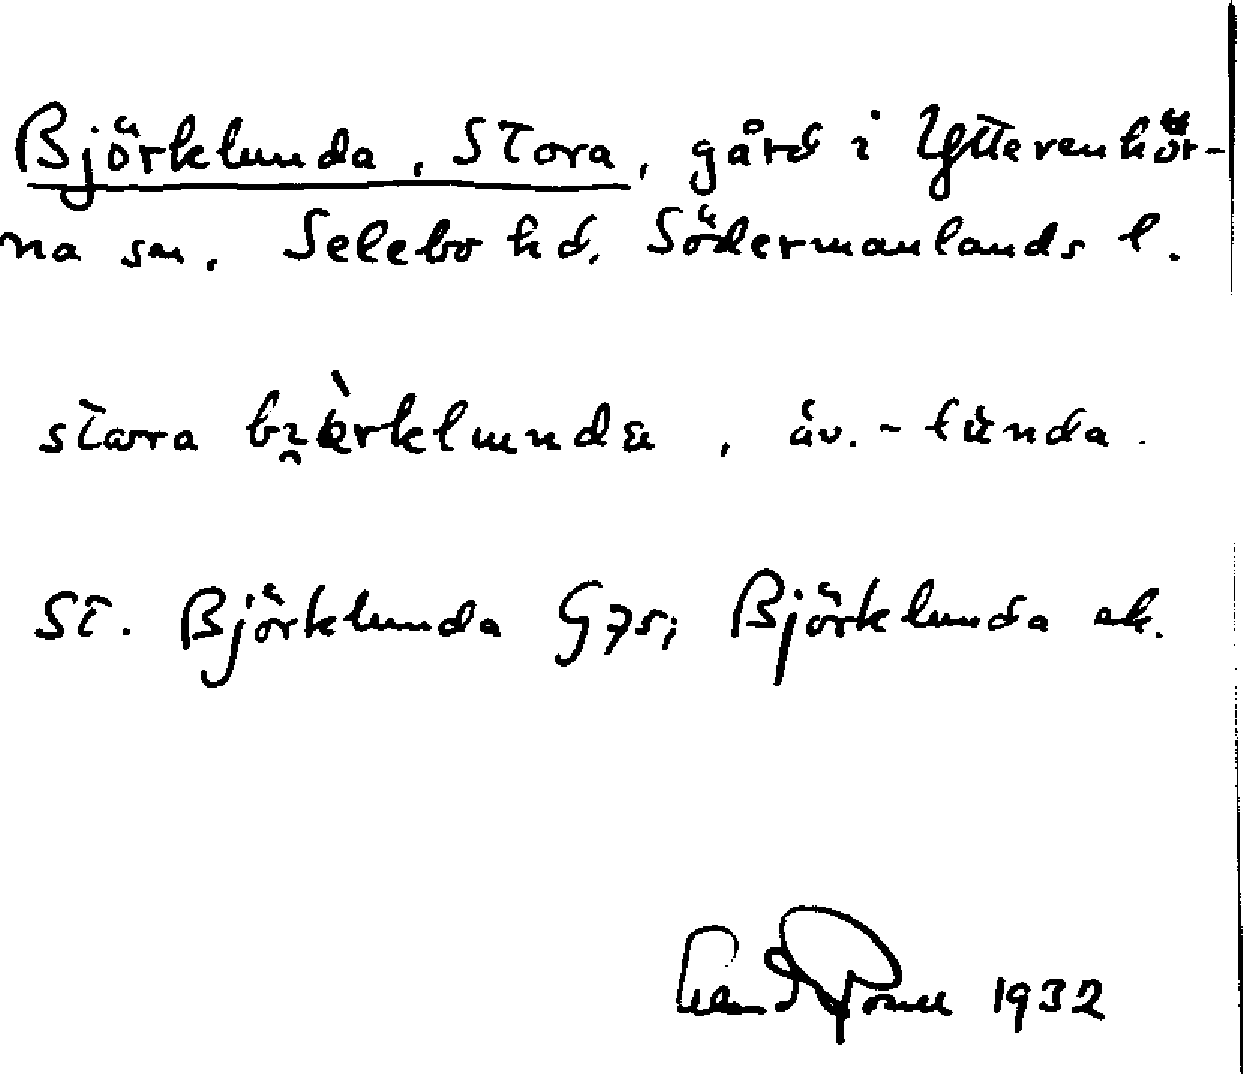 Björklunda, Stora, gård i Ytterenhör-
na sn. Selebo hd. Södermanlands l.
stora björklunda, äv. - lunda.
St. Björklunda G75; Björklunda ek.
1932